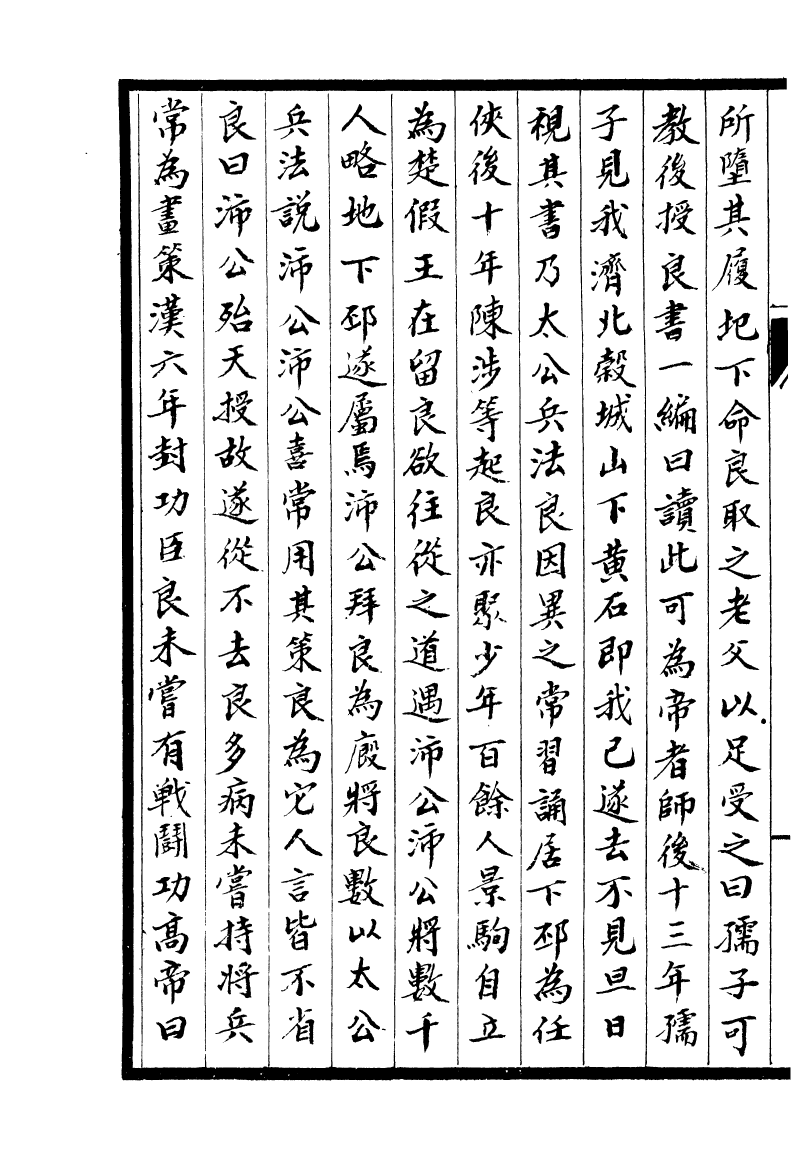 所墮其履圯下命良取之老父以足受之曰孺子可
教後授良書一編曰讀此可為帝者師後十三年孺
子見我濟北穀城山下黃石即我已遂去不見旦日
視其書乃太公兵法良因異之常習誦居下邳為任
俠後十年陳涉等起良亦聚少年百餘人景駒自立
為楚假王在留良欲往從之道遇沛公沛公將數千
人略地下邳遂屬焉沛公拜良為廄將良數以太公
兵法說沛公沛公喜常用其策良為它人言皆不省
良曰沛公殆天授故遂從不去良多病未嘗持將兵
常為畫策漢六年封功臣良未嘗有戰鬭功高帝曰